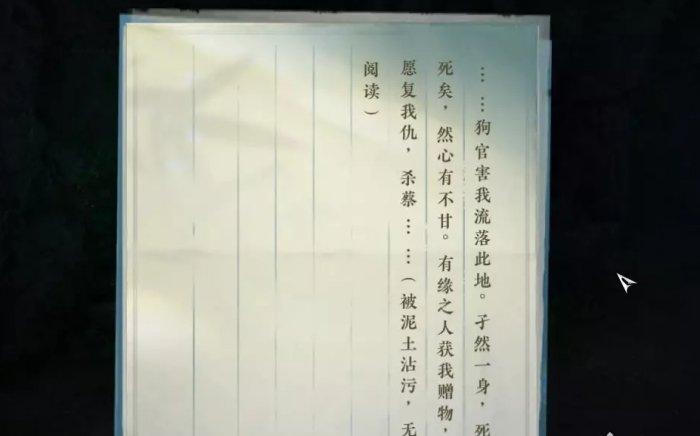 ……狗官害我流落此地。孑然一身，死
死矣，然心有不甘。有缘之人获我赠物，
愿复我仇，杀蔡……（被泥土沾污，无
阅读）